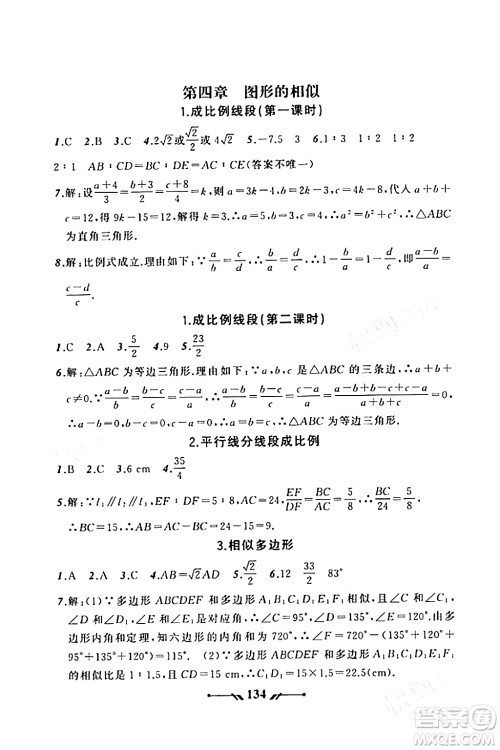 第四章 图形的相似
1.成比例线段(第一课时)
1.C 2.B 3.C 4.2√2或√2/2或4√2 5.-7.5 6.1∶1 1∶2
2∶1 AB∶CD=BC∶DE=AC∶CE(答案不唯一)
7.解:设(a+4)/3=(b+3)/2=(c+8)/4=k,则可以得到a=3k-4,b=2k-3,c=4k-8,代入a+b+
c=12,得 9k-15=12,解得 k=3.∴a=5,b=3,c=4.∴a²=b²+c².∴△ABC
为直角三角形.
8.解:比例式成立.理由如下:∵a/b=c/d,∴a/c=b/d.∴a/c-1=b/d-1.∴(a-c)/c=(b-d)/d.∴(a-b)/b=
(c-d)/c.
1.成比例线段(第二课时)
1.C 2.A 3.5/2 4.9 5.23/2
6.解:△ABC 为等边三角形.理由如下:∵a,b,c 是△ABC 的三条边,∴a+b+
c≠0.∴(a-b)/c=(b-c)/a=(c-a)/b=(a-b+b-c+c-a)/(a+b+c)=0.∴a-b=0,b-c=0,c-a
=0.∴a=b,b=c,c=a.∴a=b=c.∴△ABC 为等边三角形.
2.平行线分线段成比例
1.B 2.C 3.6 cm 4.35/4
5.解:∵l₁∥l₂∥l₃,EF∶DF=5∶8,AC=24,∴EF/DF=BC/AC=5/8.∴BC/24=5/8.
∴BC=15.∴AB=AC-BC=24-15=9.
3.相似多边形
1.A 2.D 3.B 4.AB=√2AD 5.√2 6.12 83°
7.解:(1)∵多边形 ABCDEF 和多边形 A₁B₁C₁D₁E₁F₁ 相似,且∠C 和∠C₁、
∠D 和∠D₁、∠E 和∠E₁ 是对应角,∴∠C=95°,∠D₁=135°,∠E₁=118°.由多
边形内角和定理,知六边形的内角和为720°.∴∠F=720°-(135°+120°+95°+
135°+118°)=117°.(2)∵多边形 ABCDEF 和多边形 A₁B₁C₁D₁E₁F₁ 的相似
比是 1∶1.5,且 CD=15 cm,∴C₁D₁=15×1.5=22.5(cm).
134